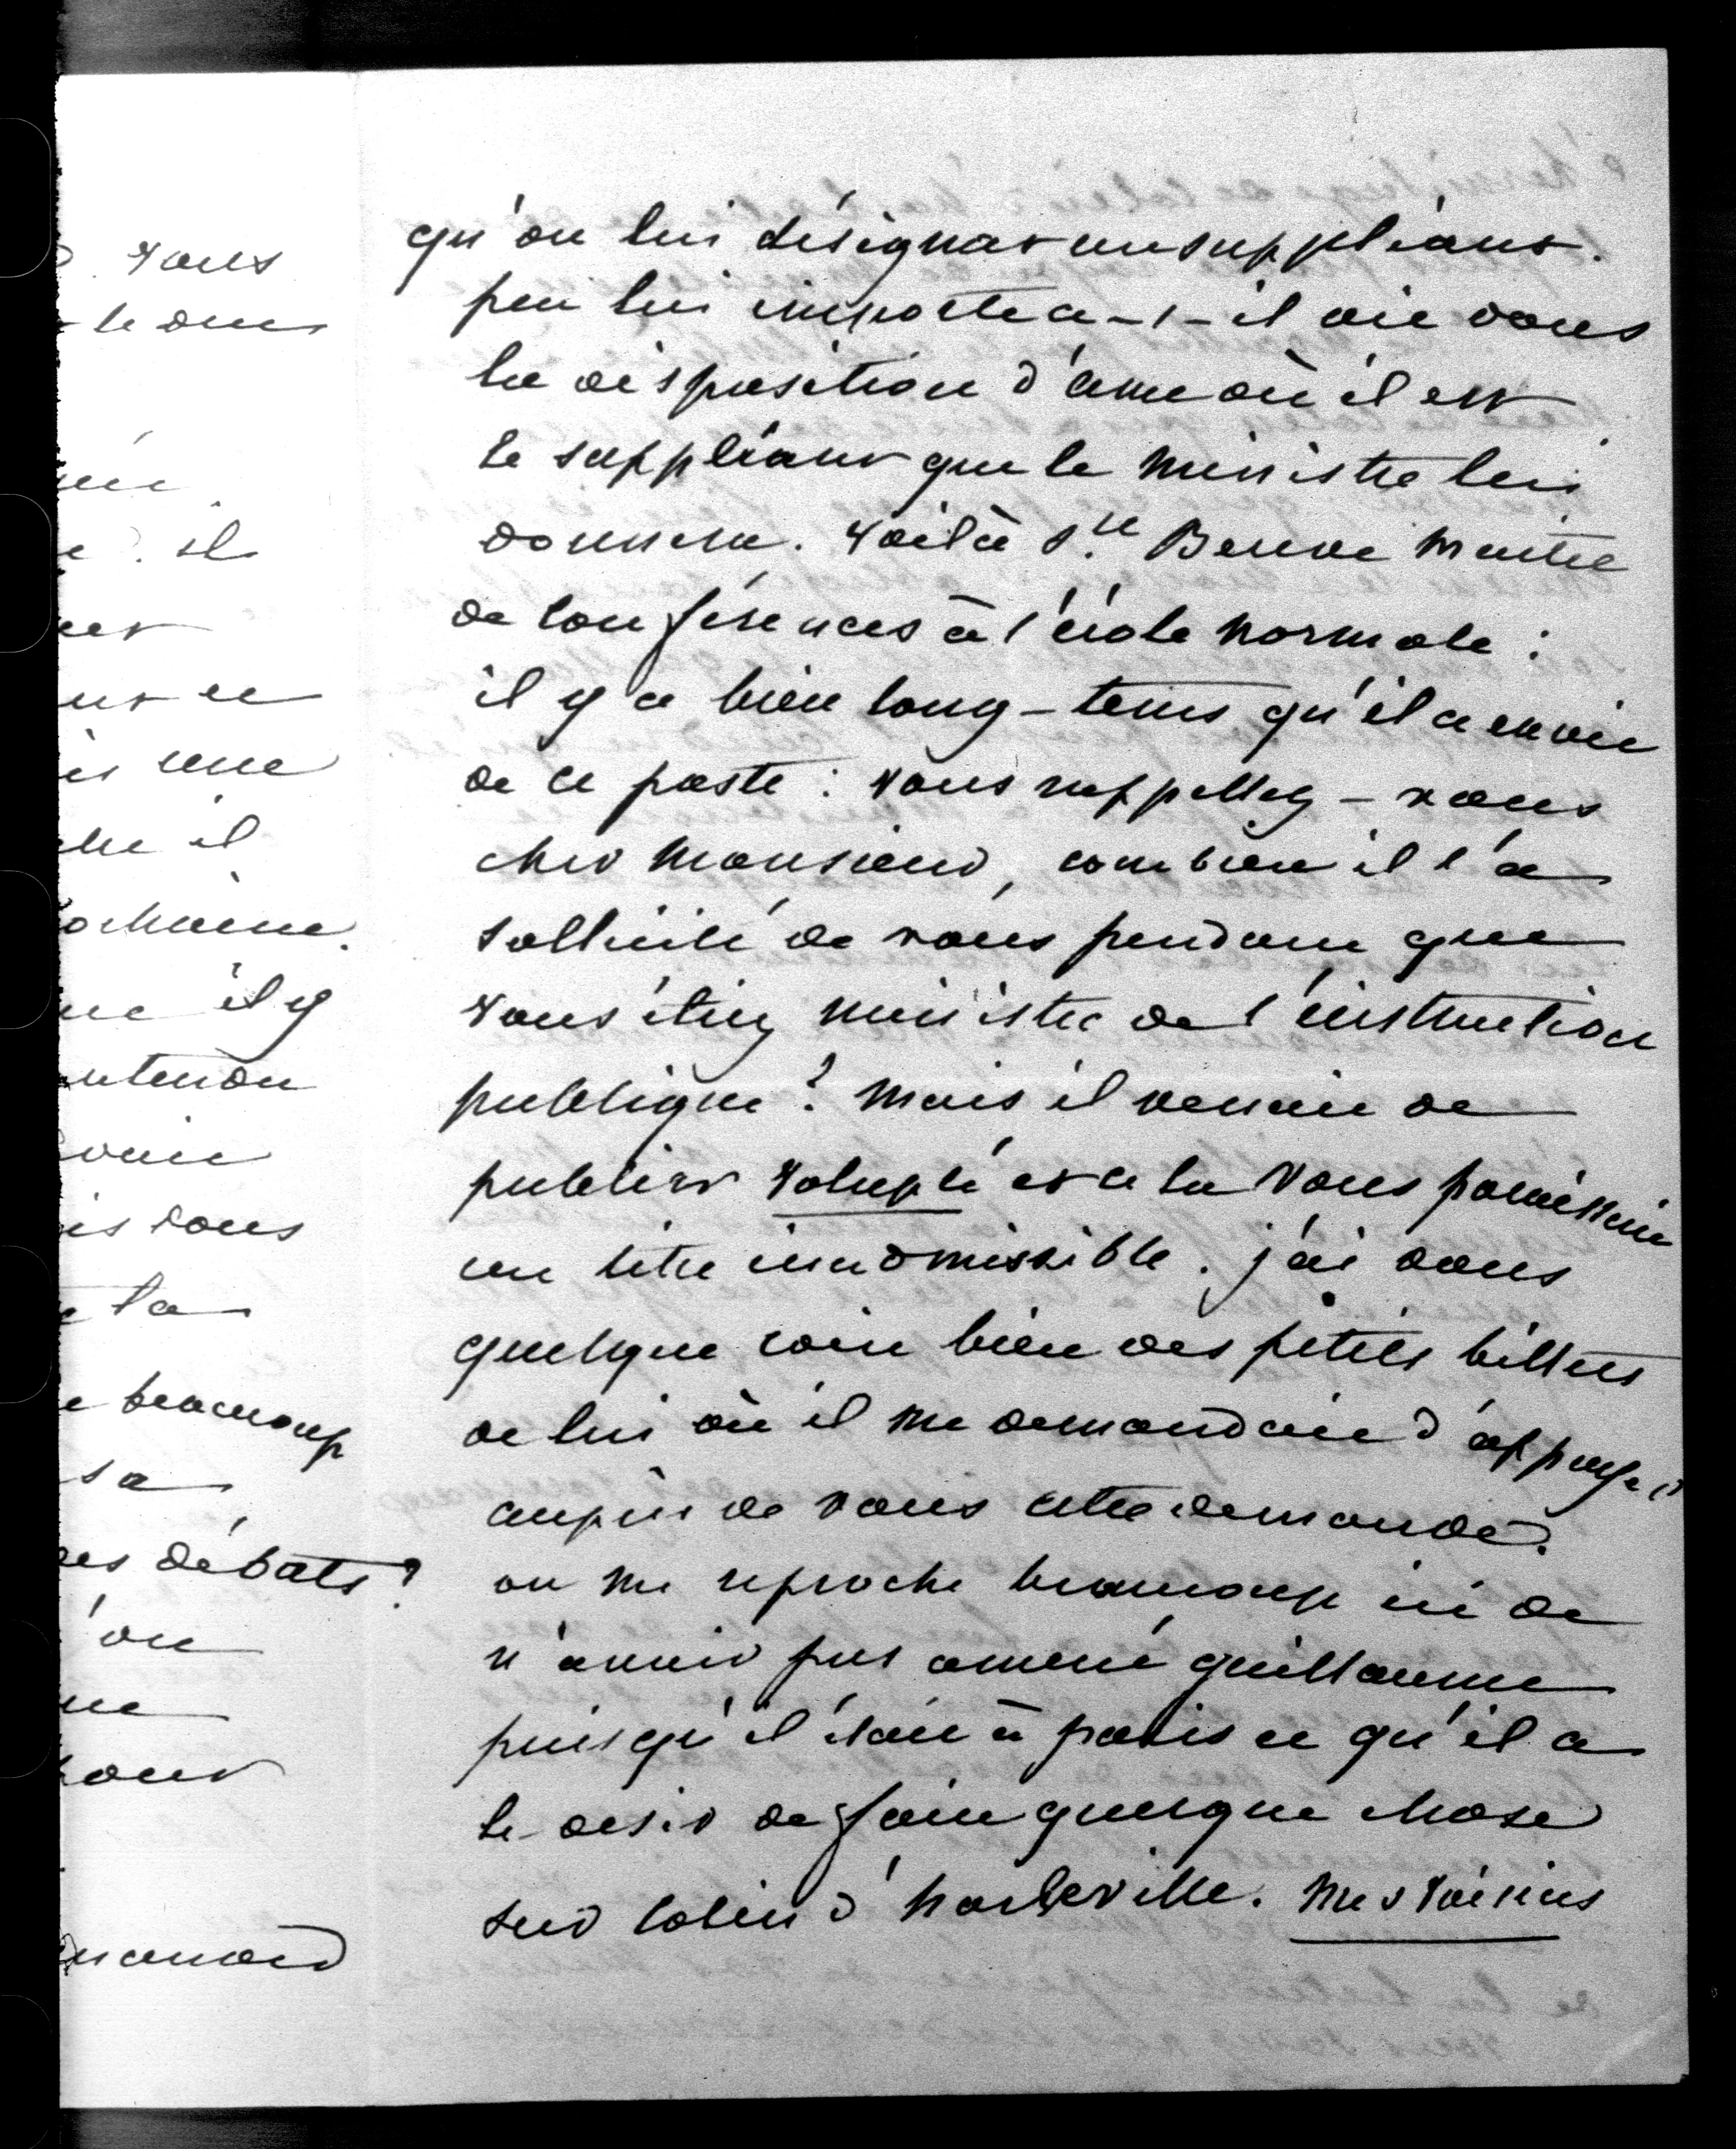 vous
il
une
il
il y
entendu
vous
la
beaucoup
sa
des débats ?
on
pour
qu'on lui désignat un suppléant.
peu lui importe a-t-il dit dans
la disposition d'ame où il est
le suppléant que le ministre lui
donnera. Voilà Ste Beuve maitre
de conférences à l'école normale :
il y a bien long-tems qu'il a envie
de ce poste : vous rappellez-vous
cher Monsieur, combien il l'a
sollicité de vous pendant que
vous étiez ministre de l'instruction
publique ? Mais il venait de
publier Volupté et cela vous paraissait
un titre inadmissible. j'ai dans
quelque coin bien des petits billets
de lui où il me demandait d'appuyer
auprès de vous cette demande.
on me reproche beaucoup ici de
n'avoir pas amené guillaume
puisqu'il était à paris et qu'il a
le désir de faire quelque chose
sur Colin d'harleville. Mes Voisins